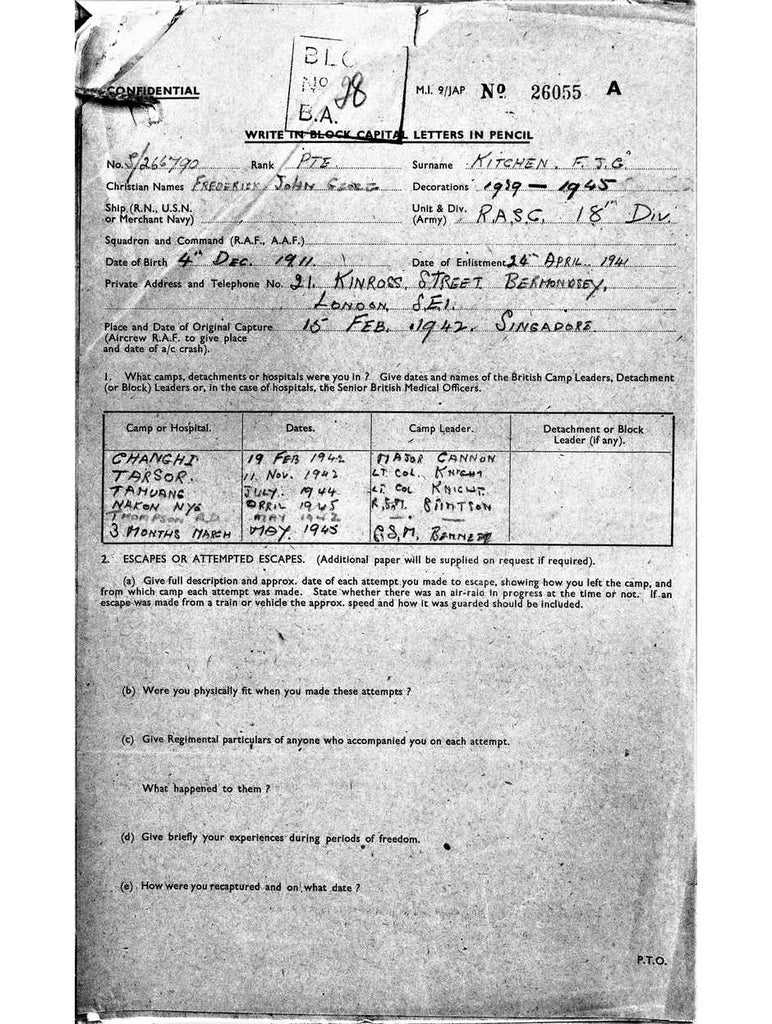 BLC
No 28
B.A.
CONFIDENTIAL
M.I. 9/JAP No 26055 A
WRITE IN BLOCK CAPITAL LETTERS IN PENCIL
No. S/266790 Rank PTE. Surname KITCHEN. F.J.G.
Christian Names FREDERICK JOHN GEORGE Decorations 1939 — 1945
Ship (R.N., U.S.N. or Merchant Navy) Unit & Div. (Army) R.A.S.C. 18th DIV.
Squadron and Command (R.A.F., A.A.F.)
Date of Birth 4th DEC. 1911 Date of Enlistment 24th APRIL. 1941
Private Address and Telephone No. 21. KINROSS, STREET, BERMONDSEY,
LONDON, S.E.1.
Place and Date of Original Capture 15 FEB. 1942. SINGAPORE
(Aircrew R.A.F. to give place
and date of a/c crash).
1. What camps, detachments or hospitals were you in ? Give dates and names of the British Camp Leaders, Detachment
(or Block) Leaders or, in the case of hospitals, the Senior British Medical Officers.
Camp or Hospital. Dates. Camp Leader. Detachment or Block Leader (if any).
CHANGHI 19 FEB 1942 MAJOR CANNON
TARSOR. 11 NOV. 1942 LT COL. KNIGHT
TAMUANG JULY. 1944 LT. COL KNIGHT.
NAKON NYE APRIL 1945 R.S.M.
THOMPSON RD MAY 1942 —
3 MONTHS MARCH MAY. 1945 C.S.M. BENNETT
2. ESCAPES OR ATTEMPTED ESCAPES. (Additional paper will be supplied on request if required).
(a) Give full description and approx. date of each attempt you made to escape, showing how you left the camp, and
from which camp each attempt was made. State whether there was an air-raid in progress at the time or not. If an
escape was made from a train or vehicle the approx. speed and how it was guarded should be included.
(b) Were you physically fit when you made these attempts ?
(c) Give Regimental particulars of anyone who accompanied you on each attempt.
What happened to them ?
(d) Give briefly your experiences during periods of freedom.
(e) How were you recaptured and on what date ?
P.T.O.